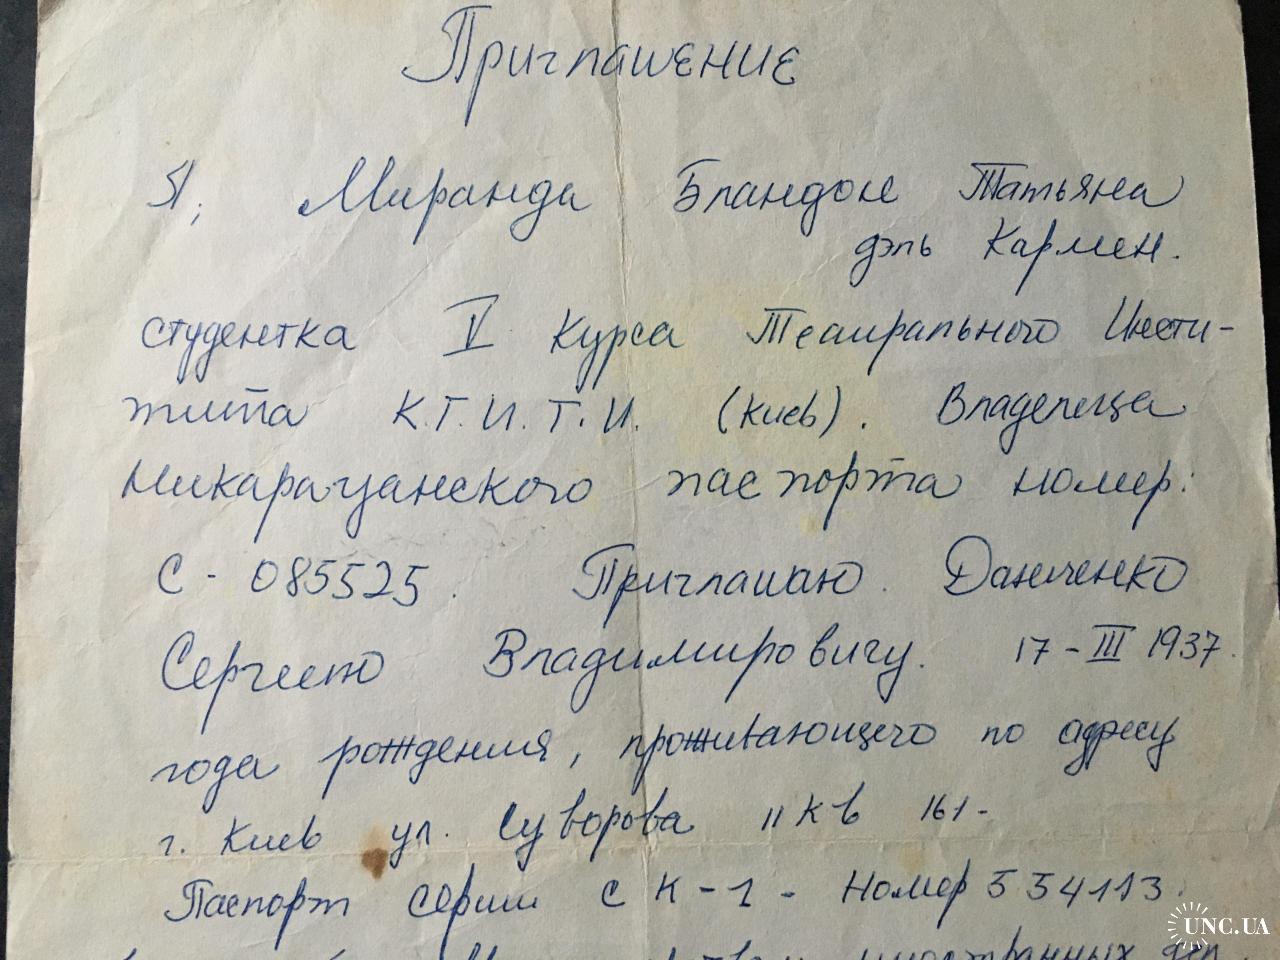 Приглашение
Я, Миранда Бландон Татьяна
дэль Кармен.
студентка V курса Театрального Инсти-
тута К.Г.И.Т.И. (Киев). Владелеца
Никарагуанского паспорта номер:
С - 085525. Приглашаю Данченко
Сергею Владимировичу. 17 - III 1937.
года рождения, проживающего по адресу
г. Киев ул. Суворова 11 кв 161-
Паспорт серии С К - 1 - Номер 554113.
иностранных дел.
UNC.UA